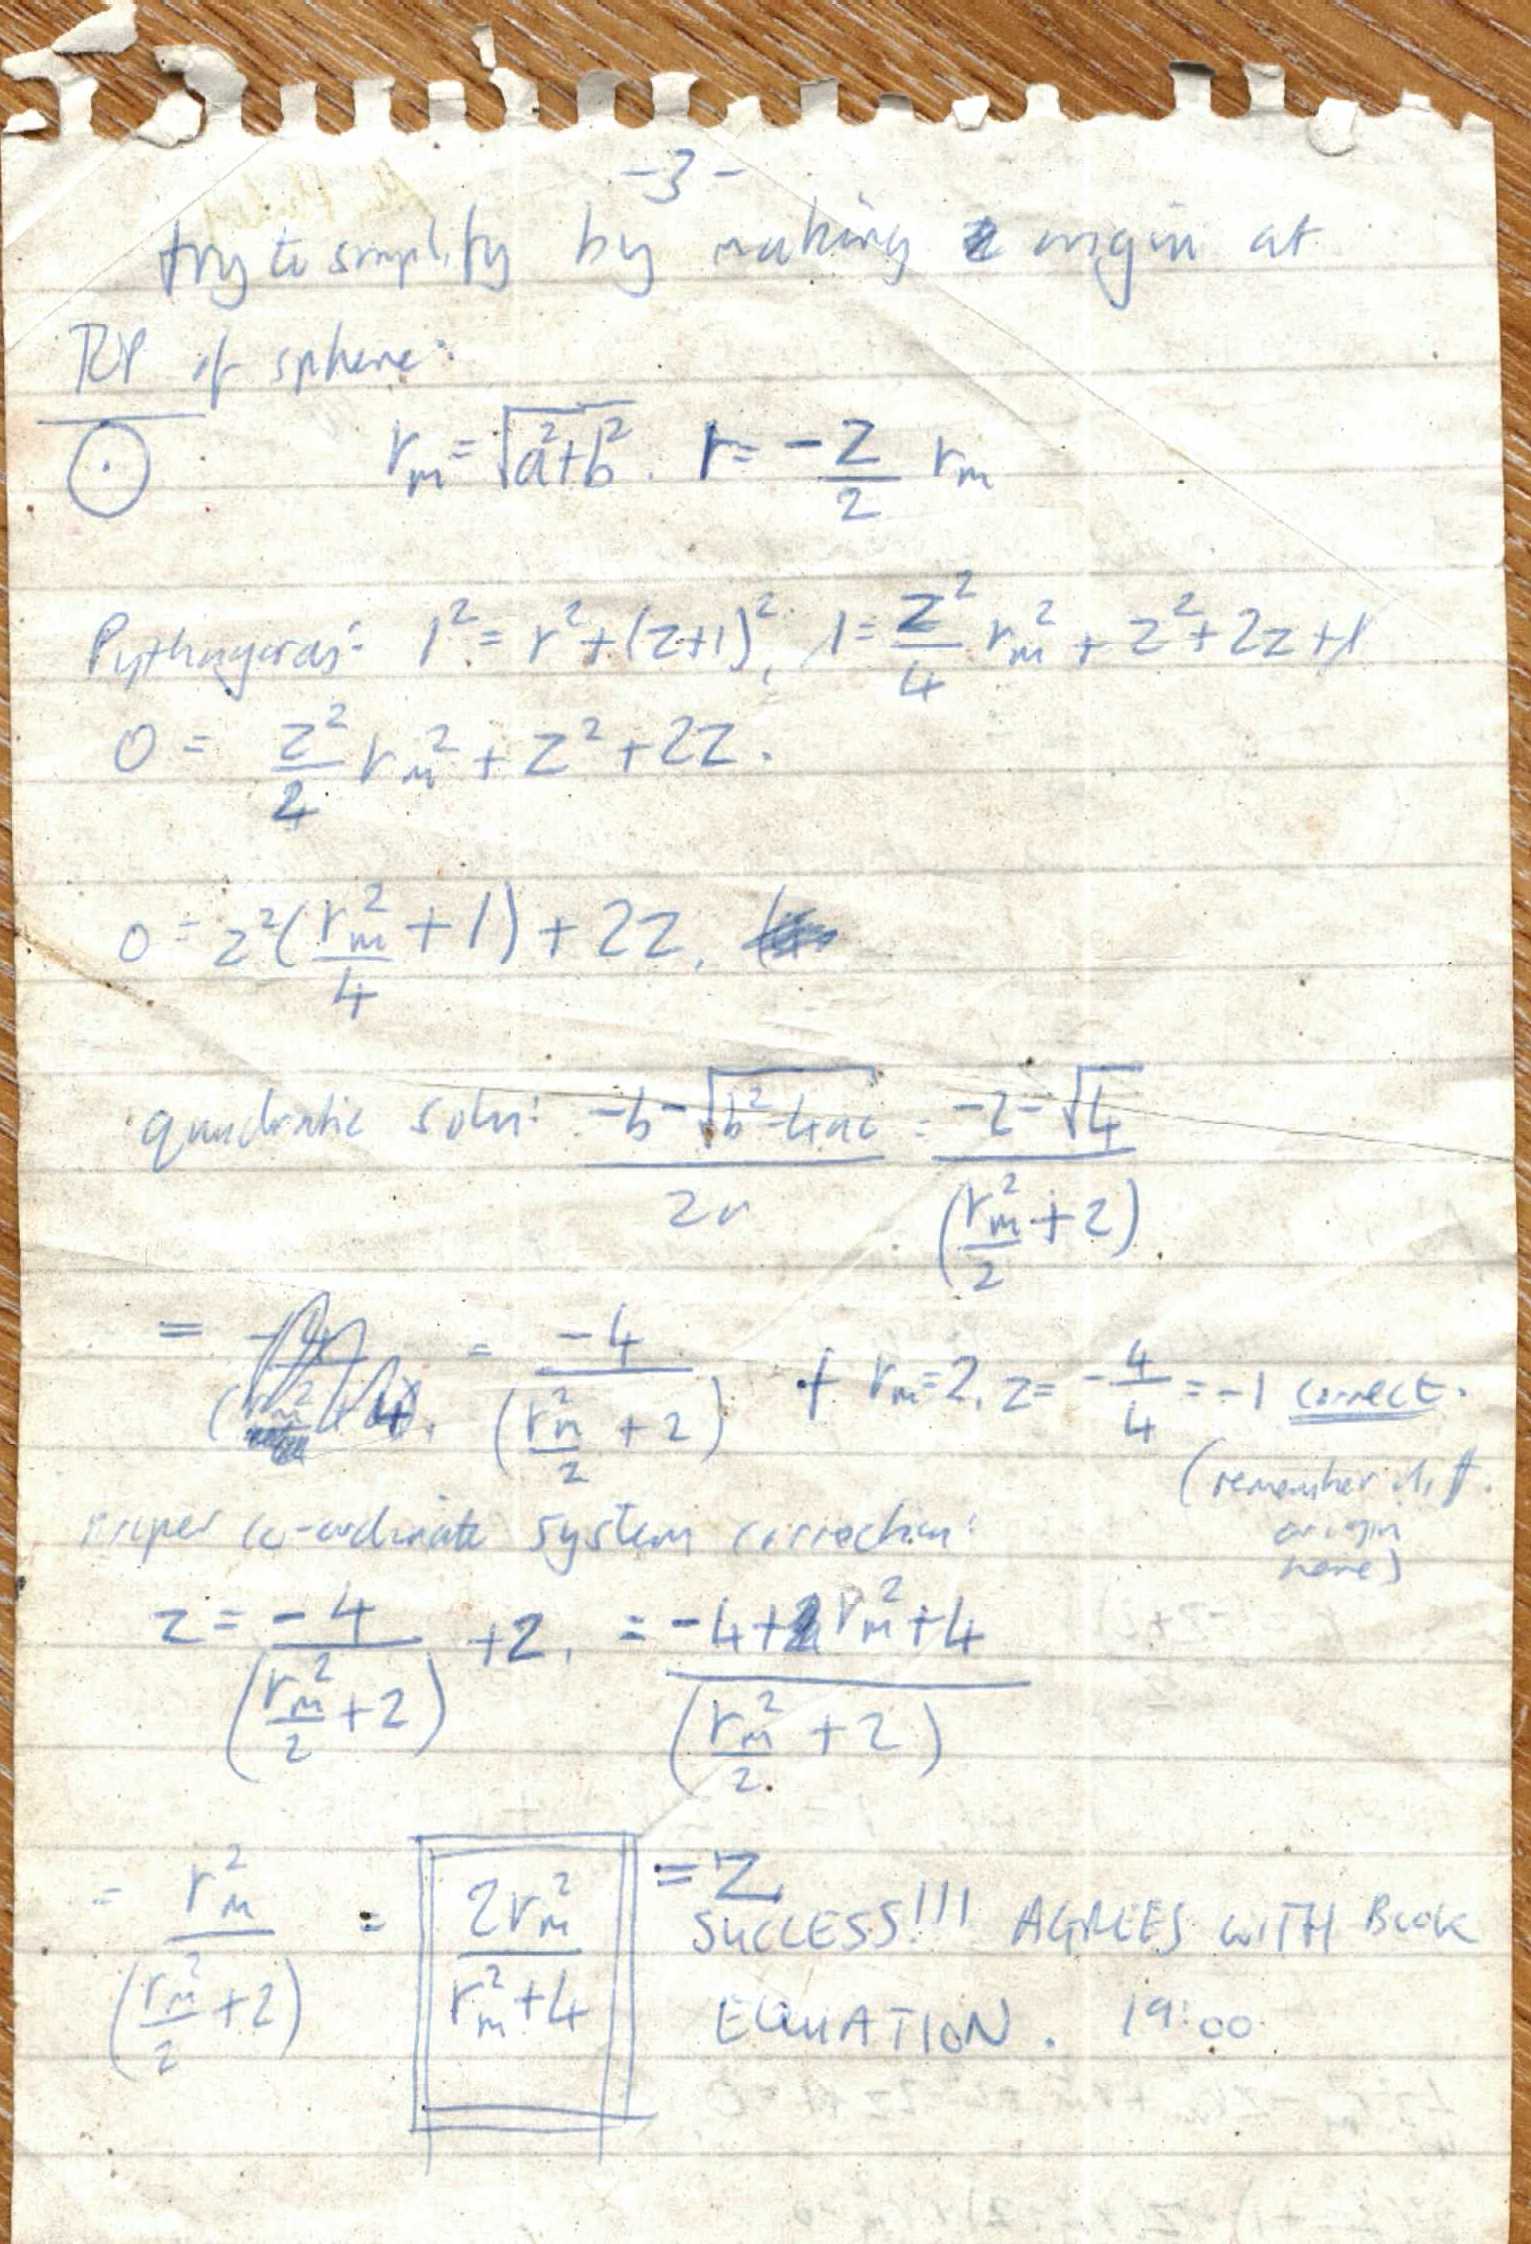 -3-
try to simplify by making origin at
TOP of sphere:
r_m = √(a²+b²). r = -z/2 r_m
Pythagoras: 1² = r²+(z+1)², 1 = z²/4 r_m² + z²+2z+1
0 = z²/4 r_m² + z² + 2z.
0 = z²(r_m²/4 + 1) + 2z.
quadratic soln: (-b-√(b²-4ac))/2a = (-2-√4)/(r_m²/2 + 2)
= = -4/(r_m²/2 + 2) if r_m=2, z= -4/4 = -1 correct.
(remember diff.
origin
here)
proper co-ordinate system correction:
z = -4/(r_m²/2 + 2) +2, = (-4 + r_m² + 4)/(r_m²/2 + 2)
= r_m²/(r_m²/2 + 2) = 2r_m²/(r_m²+4) = Z
SUCCESS!!! AGREES WITH BOOK
EQUATION. 19:00